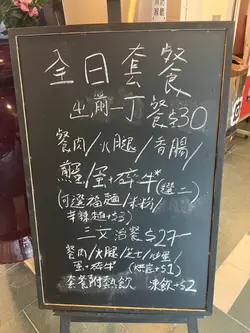 全日套餐
出前一丁餐$30
餐肉/火腿/香腸/
煎蛋/蛋+碎牛*(選二)
(可選福麵/米粉/
辛辣麵+$3)
三文治餐$27
餐肉/火腿/芝士/
蛋+碎牛* (烘底+$1)
套餐附熱飲 凍飲+$2